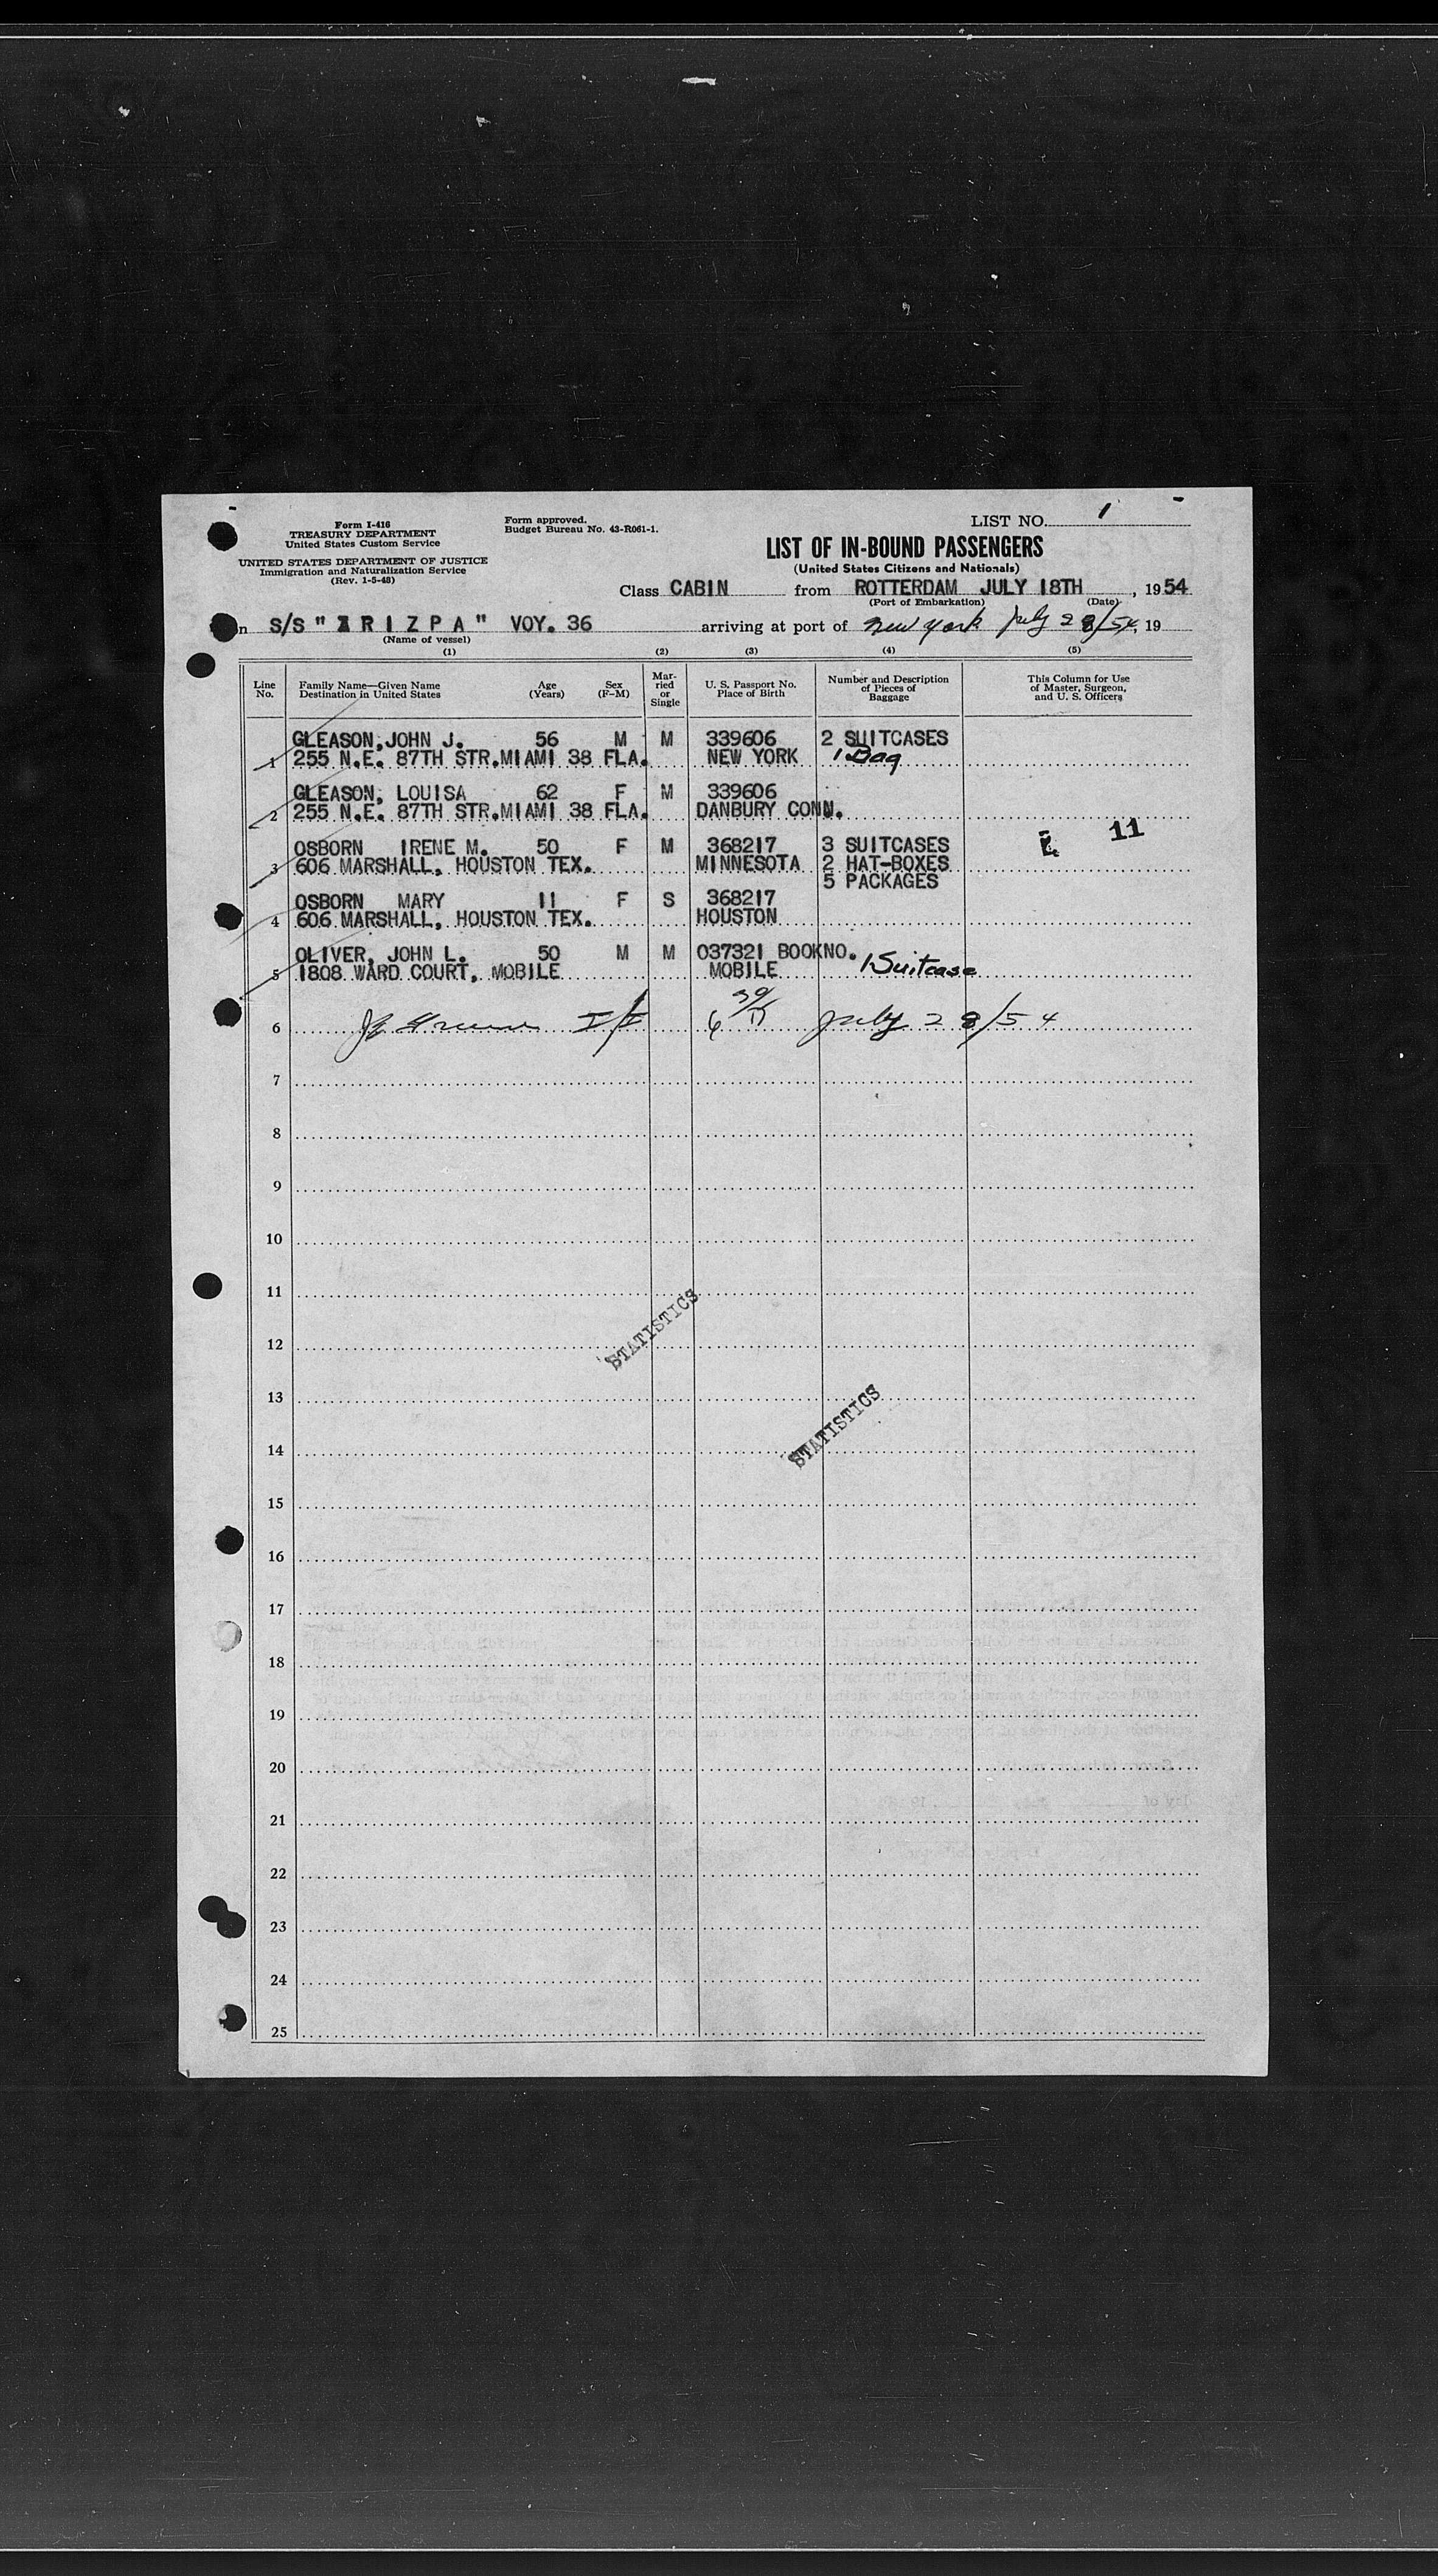 Form I-416
TREASURY DEPARTMENT
United States Custom Service
UNITED STATES DEPARTMENT OF JUSTICE
Immigration and Naturalization Service
(Rev. 1-5-48)
Form approved.
Budget Bureau No. 43-R061-1.
LIST NO. 1
LIST OF IN-BOUND PASSENGERS
(United States Citizens and Nationals)
Class CABIN from ROTTERDAM JULY 18TH, 1954
(Port of Embarkation) (Date)
n S/S "ARIZPA" VOY. 36 arriving at port of New York July 28/54, 19
(Name of vessel)
(1) (2) (3) (4) (5)
Line No. Family Name—Given Name Destination in United States Age (Years) Sex (F-M) Married or Single U. S. Passport No. Place of Birth Number and Description of Pieces of Baggage This Column for Use of Master, Surgeon, and U. S. Officers
GLEASON, JOHN J. 56 M M 339606 2 SUITCASES
1 255 N.E. 87TH STR. MIAMI 38 FLA. NEW YORK 1 Bag
GLEASON, LOUISA 62 F M 339606
2 255 N.E. 87TH STR. MIAMI 38 FLA. DANBURY CONN.
OSBORN IRENE M. 50 F M 368217 3 SUITCASES 11
3 606 MARSHALL, HOUSTON TEX. MINNESOTA 2 HAT-BOXES
5 PACKAGES
OSBORN MARY 11 F S 368217
4 606 MARSHALL, HOUSTON TEX. HOUSTON
OLIVER, JOHN L. 50 M M 037321 BOOKNO.
5 1808 WARD COURT, MOBILE MOBILE 1 Suitcase
6 July 28/54
7
8
9
10
11
12
STATISTICS
13
14
STATISTICS
15
16
17
18
19
20
21
22
23
24
25